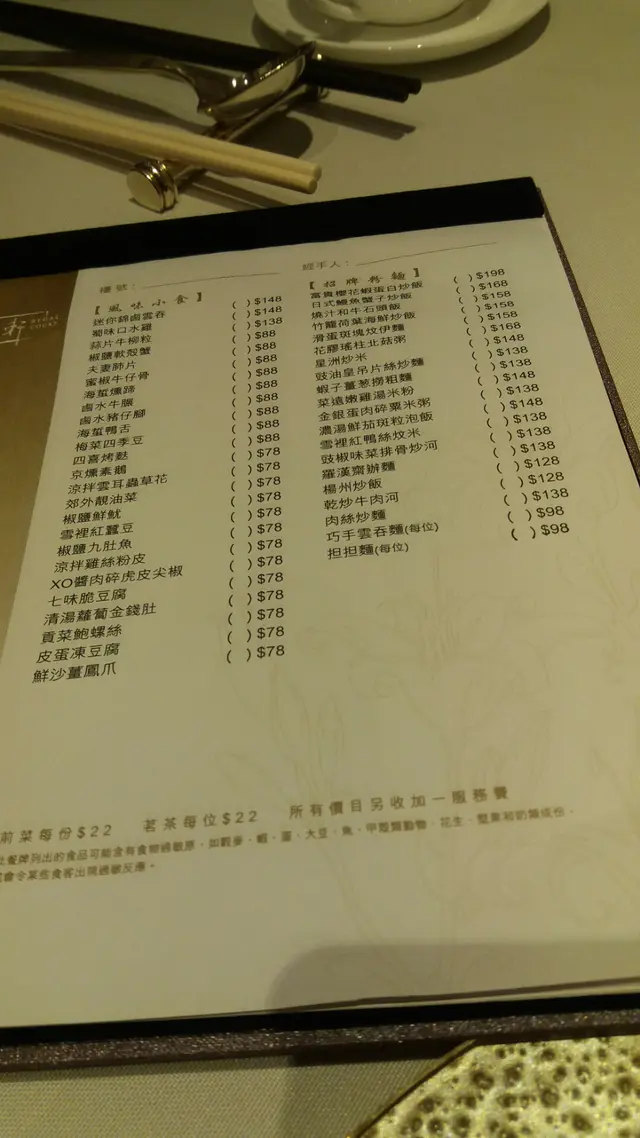 檯號:
經手人:
REGAL
COURT
【風味小食】
迷你錦鹵雲吞 ( )$148
蜀味口水雞 ( )$148
蒜片牛柳粒 ( )$138
椒鹽軟殼蟹 ( )$88
夫妻肺片 ( )$88
蜜椒牛仔骨 ( )$88
海蜇燻蹄 ( )$88
鹵水牛𦟌 ( )$88
鹵水豬仔腳 ( )$88
海蜇鴨舌 ( )$88
梅菜四季豆 ( )$88
四喜烤麩 ( )$78
京燻素鵝 ( )$78
涼拌雲耳蟲草花 ( )$78
郊外靚油菜 ( )$78
椒鹽鮮魷 ( )$78
雪裡紅蠶豆 ( )$78
椒鹽九肚魚 ( )$78
涼拌雞絲粉皮 ( )$78
XO醬肉碎虎皮尖椒 ( )$78
七味脆豆腐 ( )$78
清湯蘿蔔金錢肚 ( )$78
貢菜鮑螺絲 ( )$78
皮蛋凍豆腐 ( )$78
鮮沙薑鳳爪 ( )$78
【招牌粉麵】
富貴櫻花蝦蛋白炒飯 ( )$198
日式鰻魚蟹子炒飯 ( )$168
燒汁和牛石頭飯 ( )$158
竹龍荷葉海鮮炒飯 ( )$158
滑蛋斑塊炆伊麵 ( )$168
花膠瑤柱北菇粥 ( )$148
星洲炒米 ( )$138
豉油皇吊片絲炒麵 ( )$138
蝦子薑葱撈粗麵 ( )$148
菜遠嫩雞湯米粉 ( )$138
金銀蛋肉碎粟米粥 ( )$148
濃湯鮮茄斑粒泡飯 ( )$138
雪裡紅鴨絲炆米 ( )$138
豉椒味菜排骨炒河 ( )$138
羅漢齋辦麵 ( )$128
楊州炒飯 ( )$128
乾炒牛肉河 ( )$138
肉絲炒麵
巧手雲吞麵(每位) ( )$98
担担麵(每位) ( )$98
前菜每份$22 茗茶每位$22 所有價目另收加一服務費
餐牌列出的食品可能含有食物過敏原，如麩麥、蝦、蛋、大豆、魚、甲殼類動物、花生、堅果和奶類成份，
會令某些食客出現過敏反應。